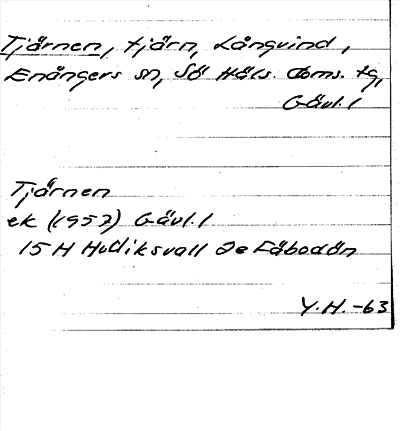 Tjärnen, tjärn, Långvind,
Enångers sn, Sö Häls. doms. tg,
Gävl. l
Tjärnen
ek (1957) Gävl. l
15 H Hudiksvall 2e Fäbodön
Y.H. -63